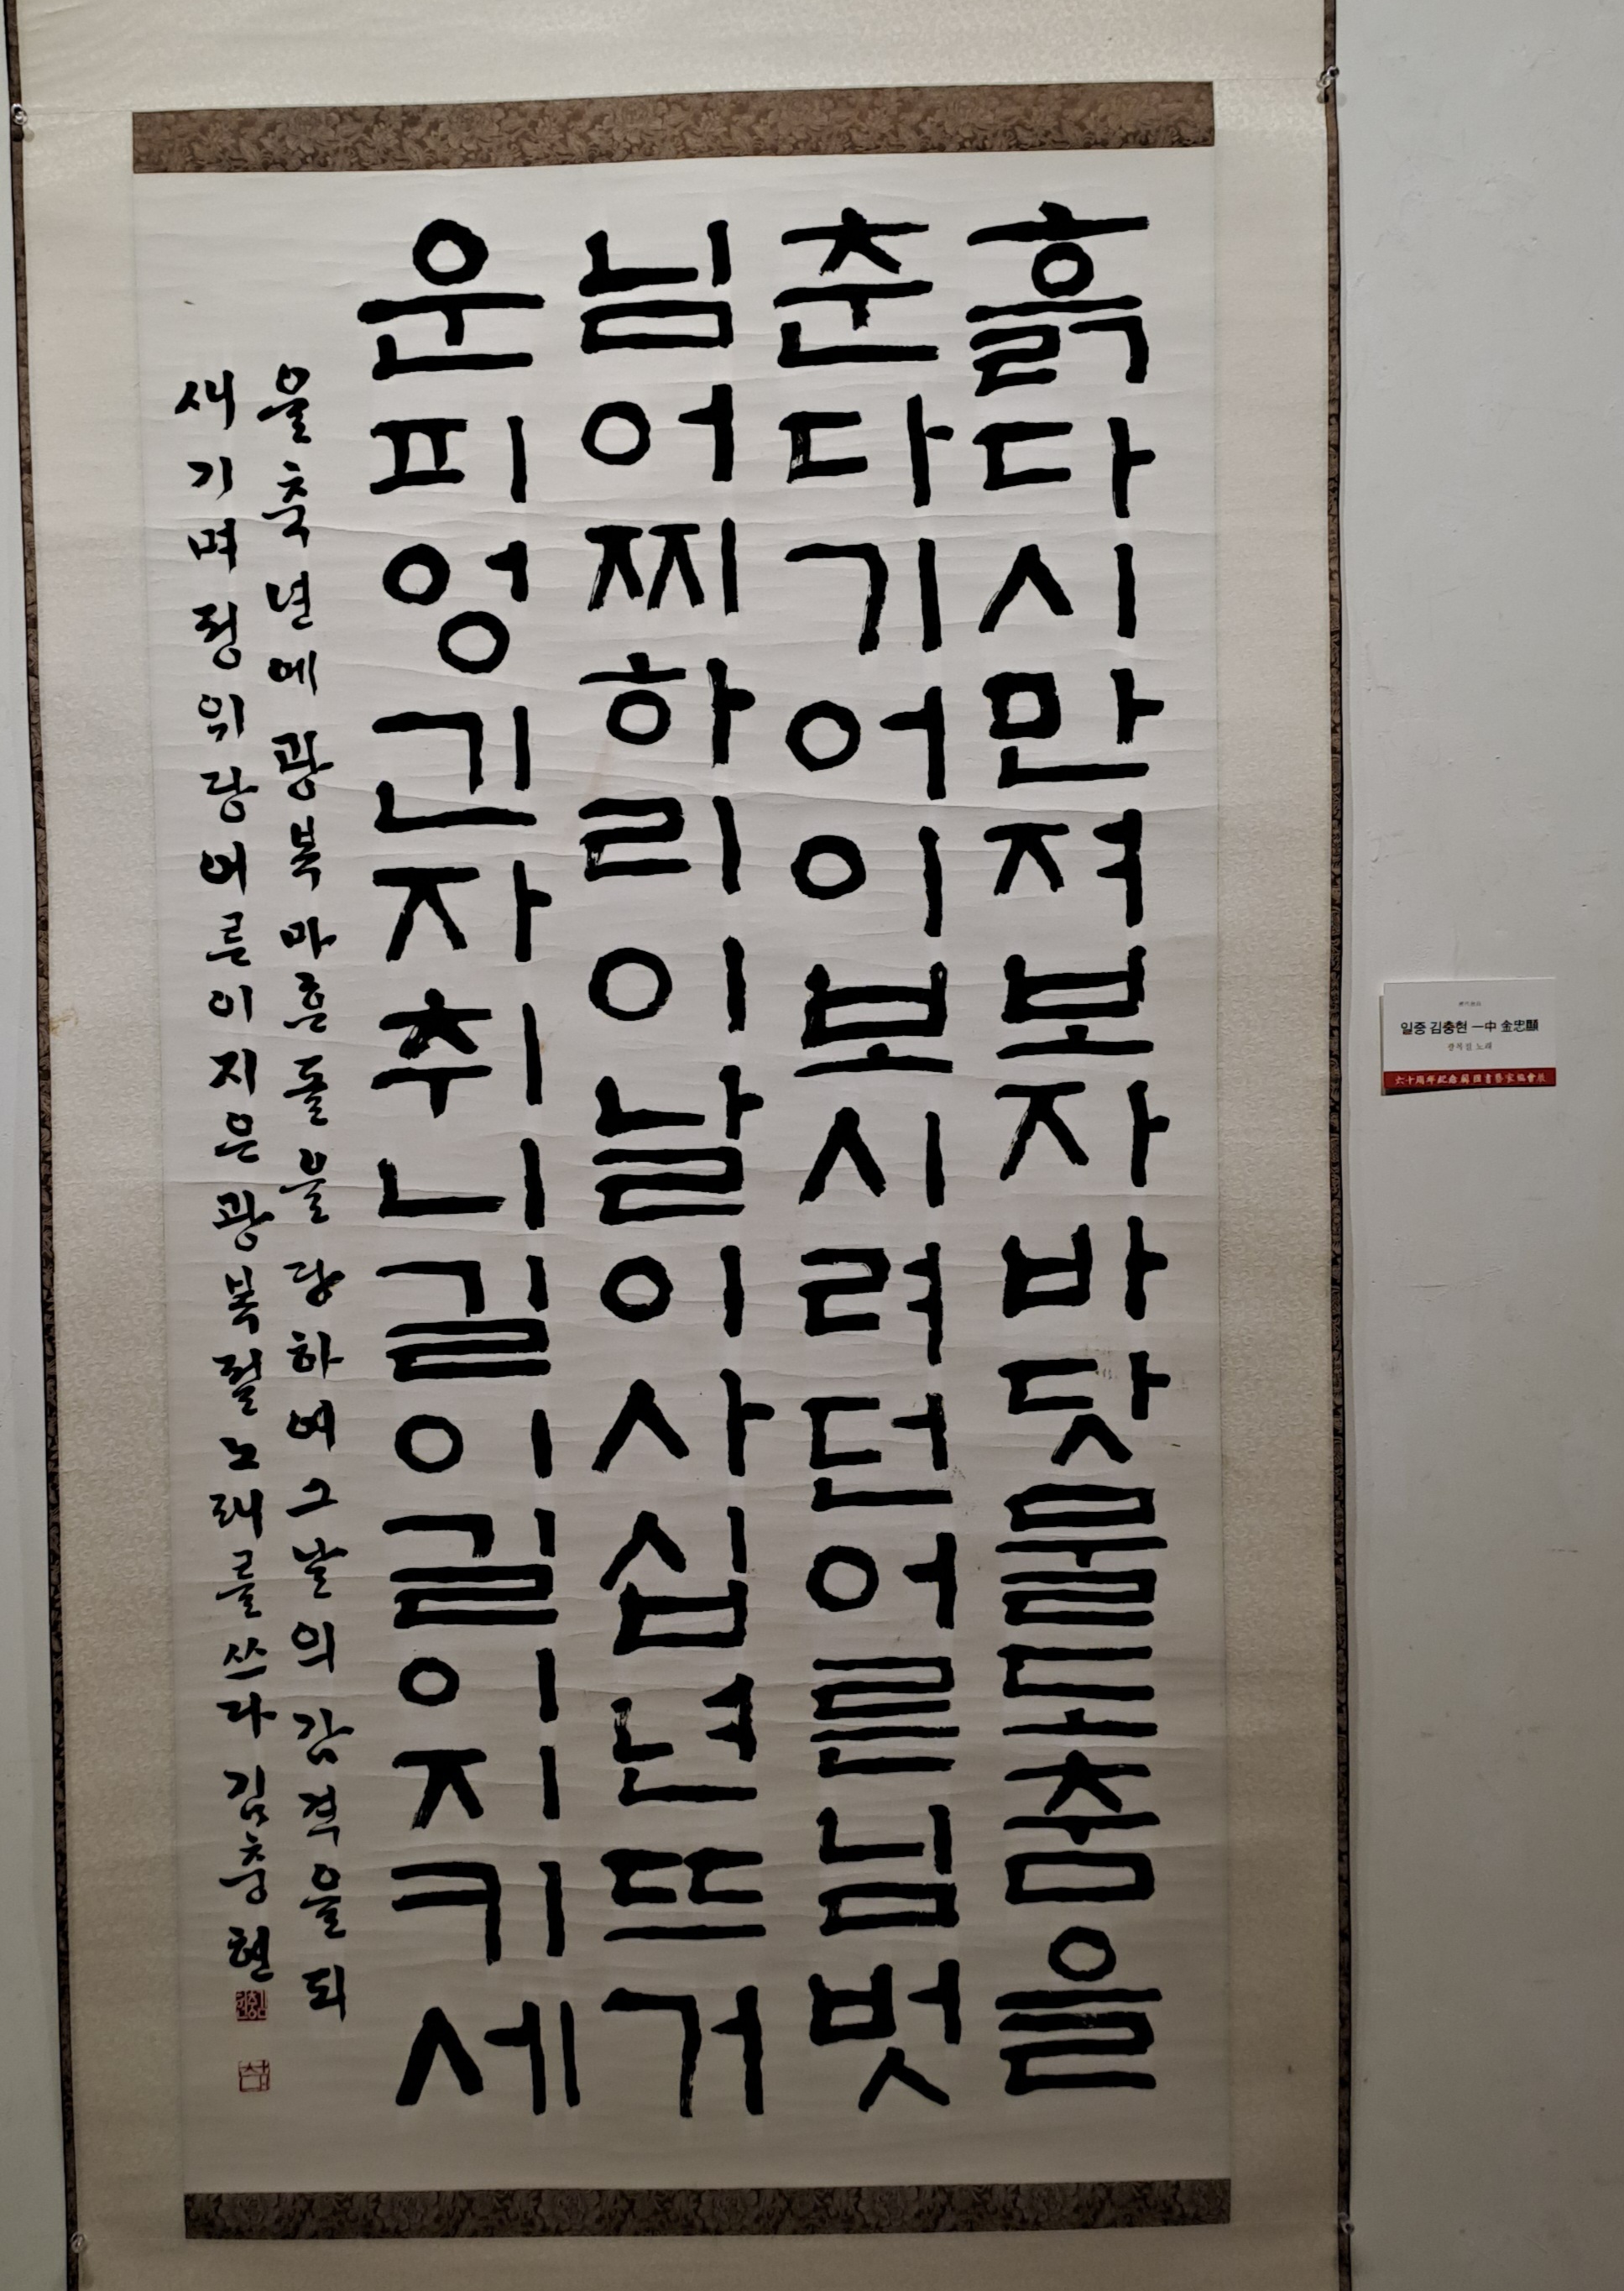 흙다시만져보자바닷물도춤을
춘다기어이보시려던어른님벗
님어찌하리이날이사십년뜨거
운피엉긴자취니길이길이지키세
을축년에광복마흔돌을당하여그날의감격을되
새기며정위당어른이지은광복절노래를쓰다김충현
일중 김충현 一中 金忠顯
광복절 노래
六十周年紀念韓國書藝家協會展